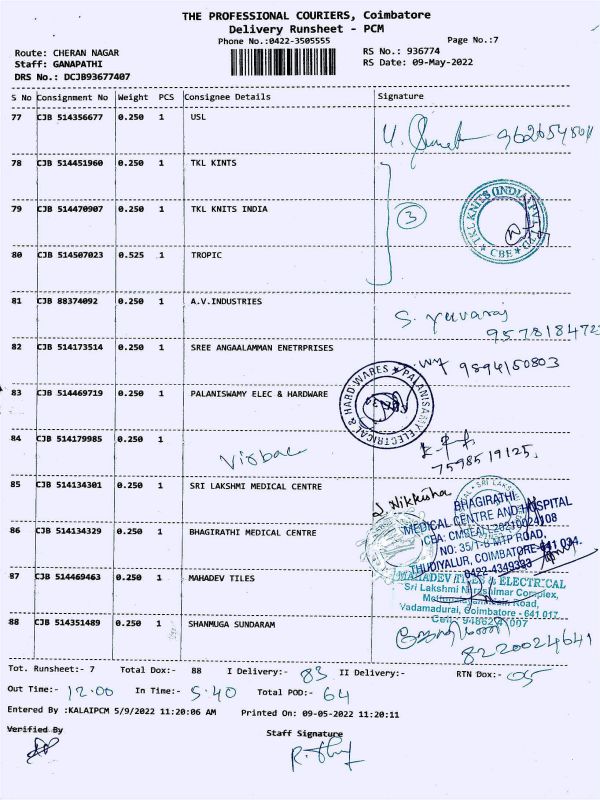 THE PROFESSIONAL COURIERS, Coimbatore
Delivery Runsheet - PCM
Phone No.:0422-3505555 Page No.:7
Route: CHERAN NAGAR RS No.: 936774
Staff: GANAPATHI RS Date: 09-May-2022
DRS No.: DCJB93677407
S No Consignment No Weight PCS Consignee Details Signature
77 CJB 514356677 0.250 1 USL
78 CJB 514451960 0.250 1 TKL KINTS
79 CJB 514470907 0.250 1 TKL KNITS INDIA 3
TKL KNITS (INDIA) PVT LTD
CBE
80 CJB 514507023 0.525 1 TROPIC
81 CJB 88374092 0.250 1 A.V.INDUSTRIES S. yuvaraj
9578184723
82 CJB 514173514 0.250 1 SREE ANGAALAMMAN ENETRPRISES 9894150803
83 CJB 514469719 0.250 1 PALANISWAMY ELEC & HARDWARE
PALANISAMY ELECTRICAL & HARD-WARES
84 CJB 514179985 0.250 1 Virbac 7598519125
85 CJB 514134301 0.250 1 SRI LAKSHMI MEDICAL CENTRE
SRI LAKS
86 CJB 514134329 0.250 1 BHAGIRATHI MEDICAL CENTRE
BHAGIRATHI
MEDICAL CENTRE AND HOSPITAL
NO: 35/1-6 MTP ROAD,
THUDIYALUR, COIMBATORE-641 034.
0422-4349333
87 CJB 514469463 0.250 1 MAHADEV TILES
MAHADEV TILES & ELECTRICAL
Sri Lakshmi Narashimar Complex,
Road,
Vadamadurai, Coimbatore - 641 017
88 CJB 514351489 0.250 1 SHANMUGA SUNDARAM
8220024641
Tot. Runsheet:- 7 Total Dox:- 88 I Delivery:- 83 II Delivery:- RTN Dox:- 05
Out Time:- 12.00 In Time:- 5.40 Total POD:- 64
Entered By :KALAIPCM 5/9/2022 11:20:06 AM Printed On: 09-05-2022 11:20:11
Verified By Staff Signature